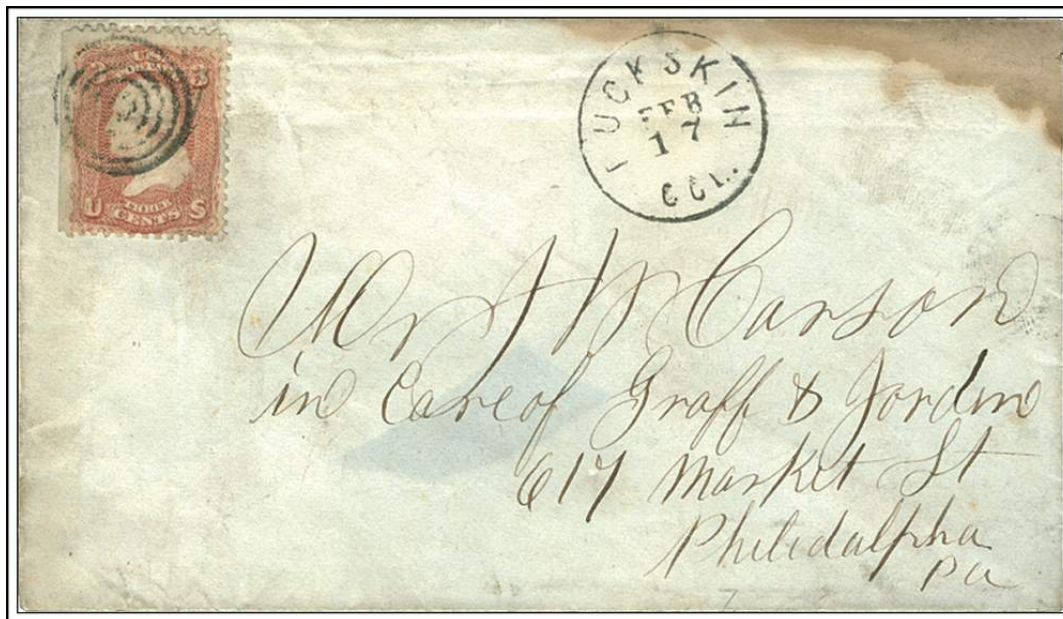 3
U S
THREE
CENTS
UCKSKIN
FEB
17
COL.
Mr J W Carson
in Care of Graff & Jordin
617 Market St
Philidalpha
Pa